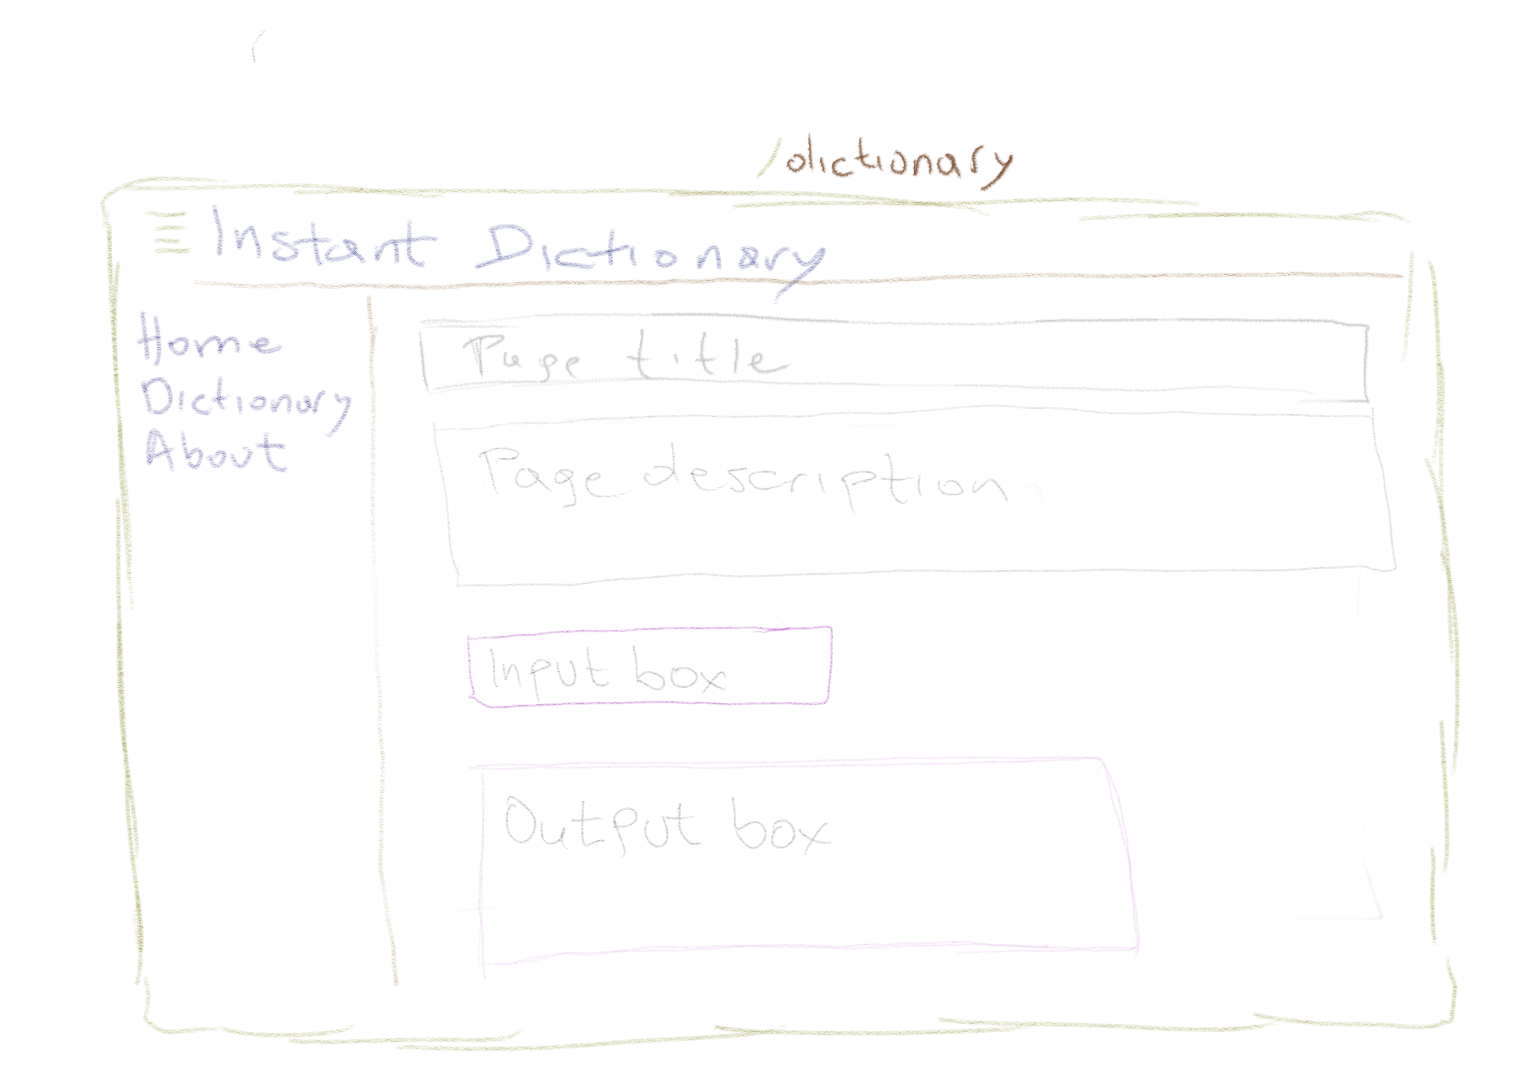 /dictionary
Instant Dictionary
Home
Dictionary
About
Page title
Page description
Input box
Output box